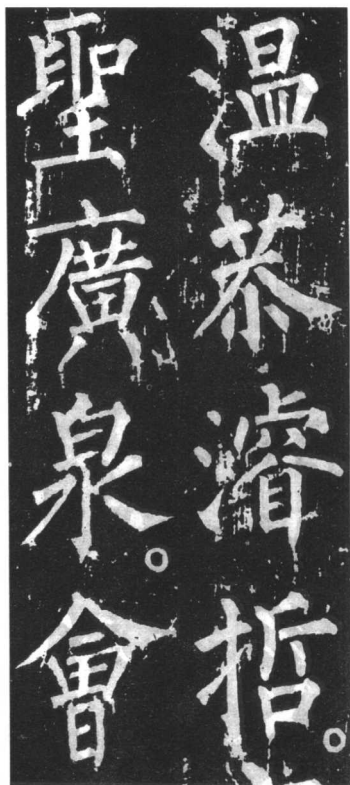 温恭濬哲。
聖廣泉。會